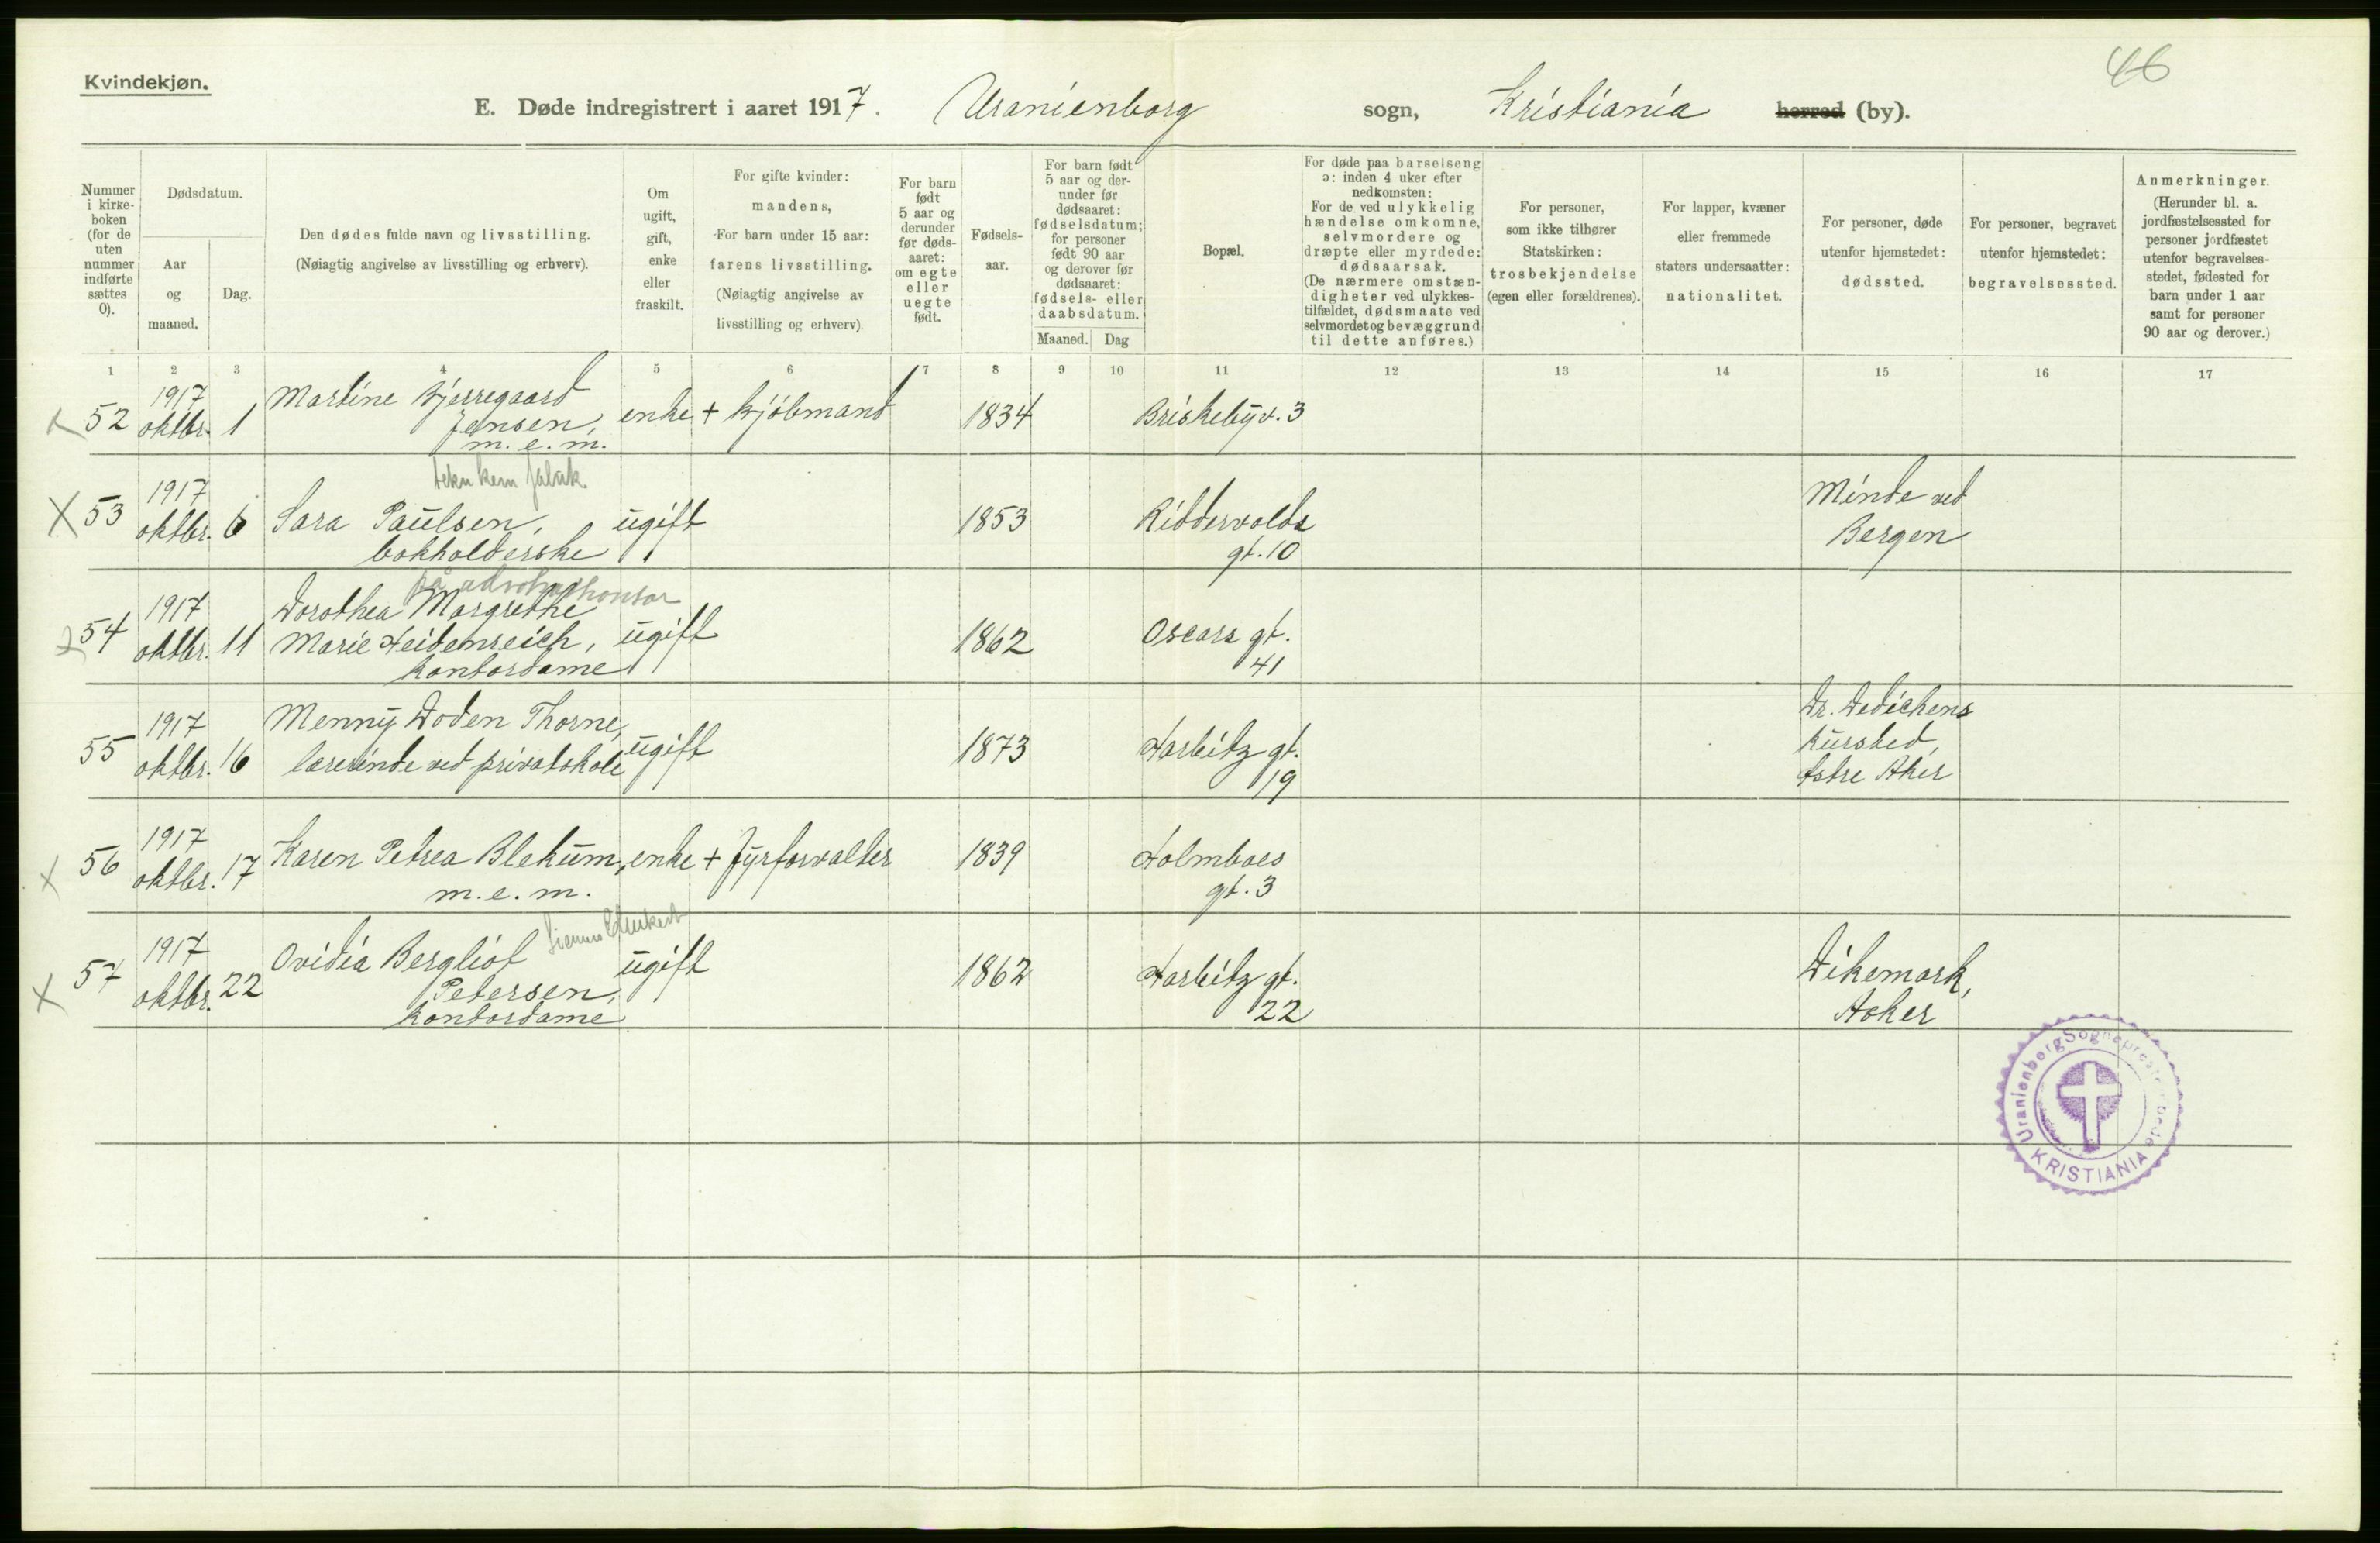 46
Kvindekjøn.
E. Døde indregistrert i aaret 1917. Uranienborg sogn, Kristiania herred (by).
Nummer i kirke-boken (for de uten nummer indførte sættes 0).
Dødsdatum.
Aar og maaned.
Dag.
Den dødes fulde navn og livsstilling.
(Nøiagtig angivelse av livsstilling og erhverv).
Om ugift, gift, enke eller fraskilt.
For gifte kvinder: mandens,
For barn under 15 aar: farens livsstilling.
(Nøiagtig angivelse av livsstilling og erhverv)
For barn født 5 aar og derunder før døds-aaret: om egte eller uegte født.
Fødsels-aar.
For barn født 5 aar og der-under før dødsaaret: fødselsdatum; for personer født 90 aar og derover før dødsaaret: fødsels- eller daabsdatum.
Maaned.
Dag
Bopæl.
For døde paa barselseng ɔ: inden 4 uker efter nedkomsten:
For de ved ulykkelig hændelse omkomne, selvmordere og dræpte eller myrdede: dødsaarsak.
(De nærmere omstæn-digheter ved ulykkes-tilfældet, dødsmaate ved selvmordet og bevæggrund til dette anføres.)
For personer, som ikke tilhører Statskirken: trosbekjendelse (egen eller forældrenes).
For lapper, kvæner eller fremmede staters undersaatter: nationalitet.
For personer, døde utenfor hjemstedet: dødssted.
For personer, begravet utenfor hjemstedet: begravelsessted.
Anmerkninger.
(Herunder bl. a. jordfæstelsessted for personer jordfæstet utenfor begravelses-stedet, fødested for barn under 1 aar samt for personer 90 aar og derover.)
1 2 3 4 5 6 7 8 9 10 11 12 13 14 15 16 17
x 52 1917 oktbr. 1 Martine Bjerregaard Jensen, m.e.m. enke + kjöbmand 1834 Briskebyv. 3
X 53 1917 oktbr. 6 Sara Paulsen, bokholderske ugift 1853 Riddervolds gt. 10 Minde ved Bergen
54 1917 oktbr. 11 på Dorothea Margrethe Marie Heidenreich, kontordame ugift 1862 Oscars gt. 41
55 1917 oktbr. 16 Menny Doden Thorne, lærerinde ved privatskole ugift 1873 Harbitz gt. 19 Dr. Dedichens kursted, Östre Aker
x 56 1917 oktbr. 17 Karen Petrea Blekum, m.e.m. enke + Fyrforvalter 1839 Holmboes gt. 3
x 57 1917 oktbr. 22 Ovidia Bergliot Petersen, kontordame ugift 1862 Harbitz gt. 22 Dikemark, Asker
Uranienborg Sogneprestembede
KRISTIANIA